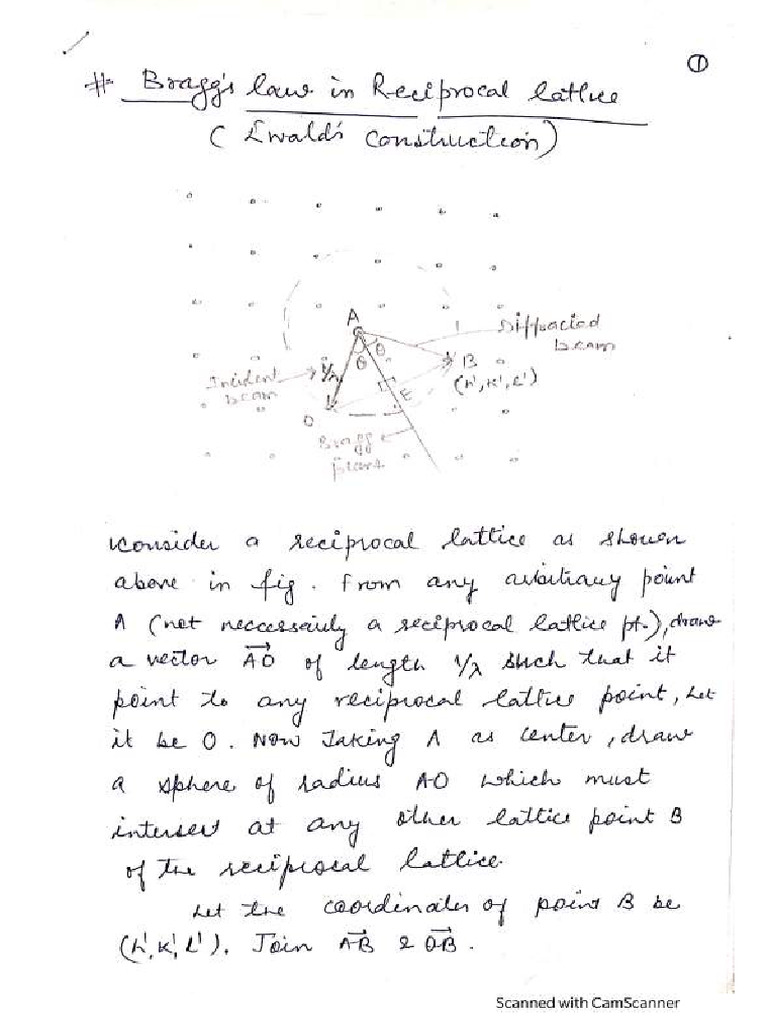 ①
# Bragg's law in Reciprocal lattice
( Ewald's construction)
A
Diffracted
beam
θ θ
B
(h',k',l')
Incident
beam
1/λ
E
O
Bragg
plane
Consider a reciprocal lattice as shown
above in fig. From any arbitrary point
A (not neccessarily a reciprocal lattice pt.), draw
a vector AO of length 1/λ such that it
point to any reciprocal lattice point, Let
it be O. Now Taking A as center, draw
a sphere of radius AO which must
intersect at any other lattice point B
of the reciprocal lattice.
Let the coordinates of point B be
(h',k',l'). Join AB & OB.
Scanned with CamScanner